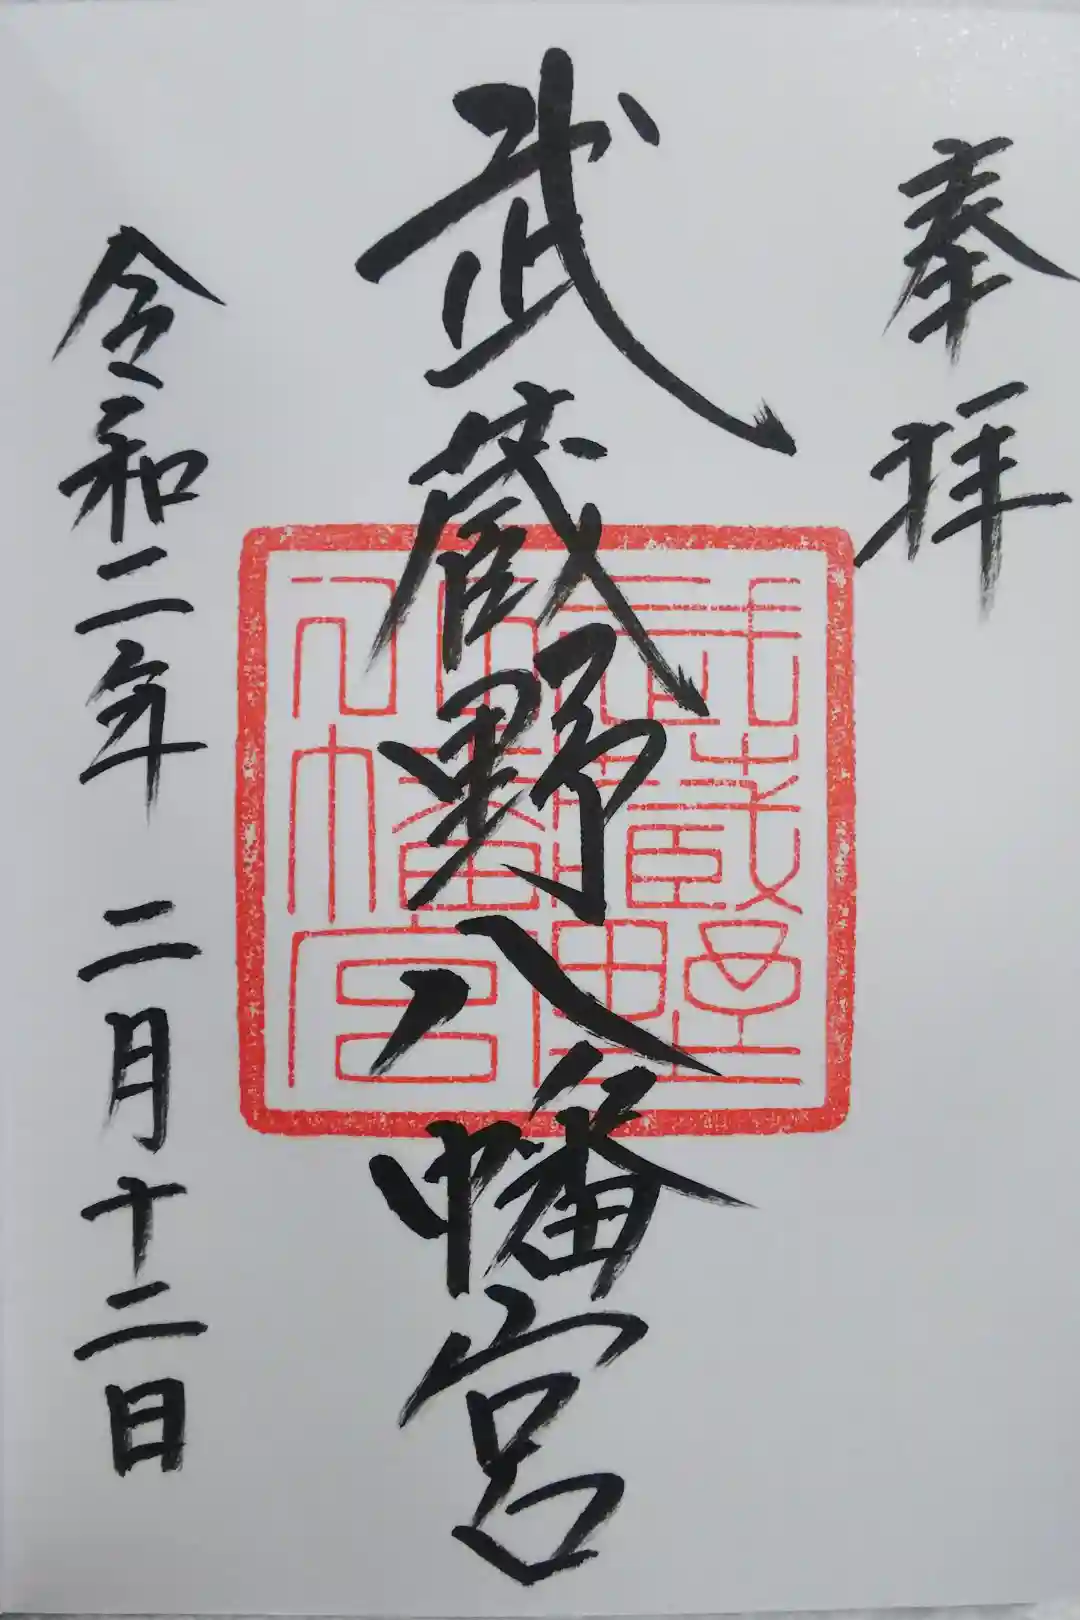 奉拝
武蔵野八幡宮
武蔵野
八幡宮
令和二年 二月十二日